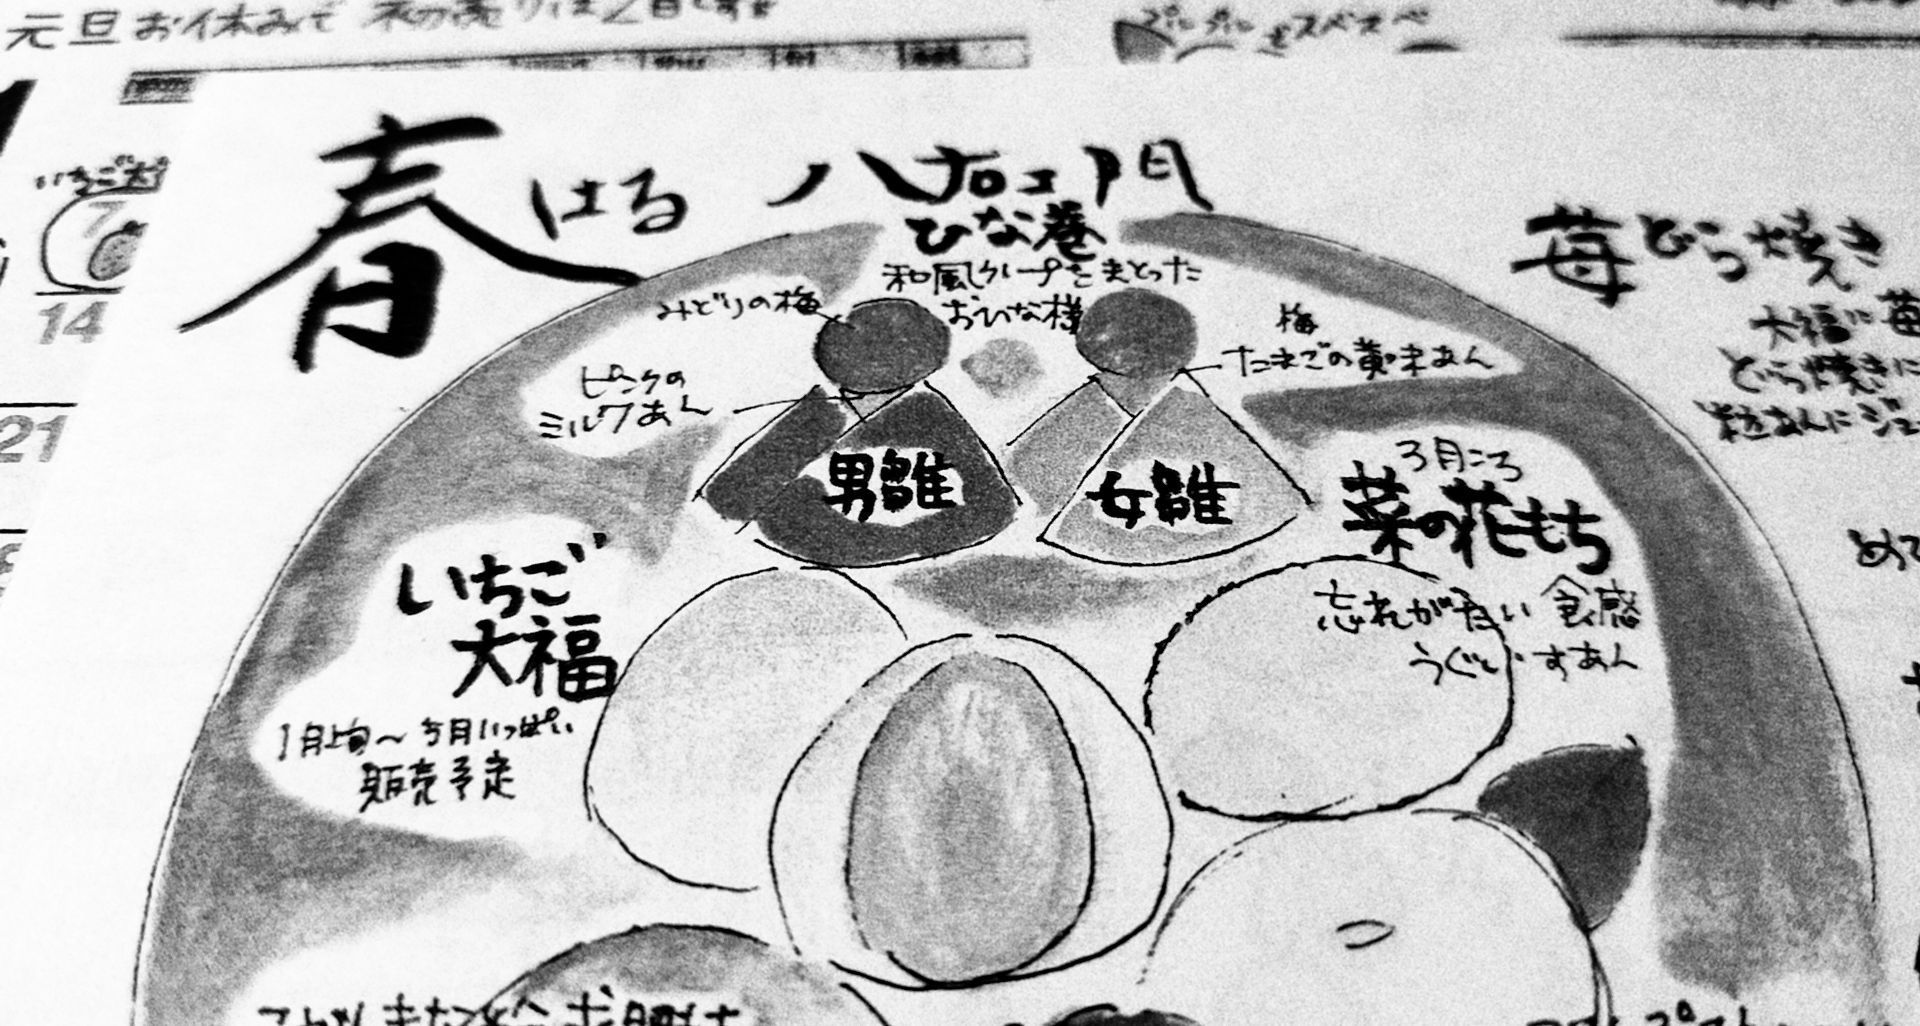 元旦お休みで 初売りは2日です
をスベスベ
いちご大
7
14
21
春はる
八右ヱ門
ひな巻
和風クレープをまとった
おひな様
みどりの梅
ピンクの
ミルクあん
梅
たまごの黄味あん
男雛
女雛
苺どら焼き
大福に苺
どら焼きに
粒あんにジェ
3月ころ
菜の花もち
忘れがたい食感
うぐいすあん
いちご
大福
1月上旬〜5月いっぱい
販売予定
めて